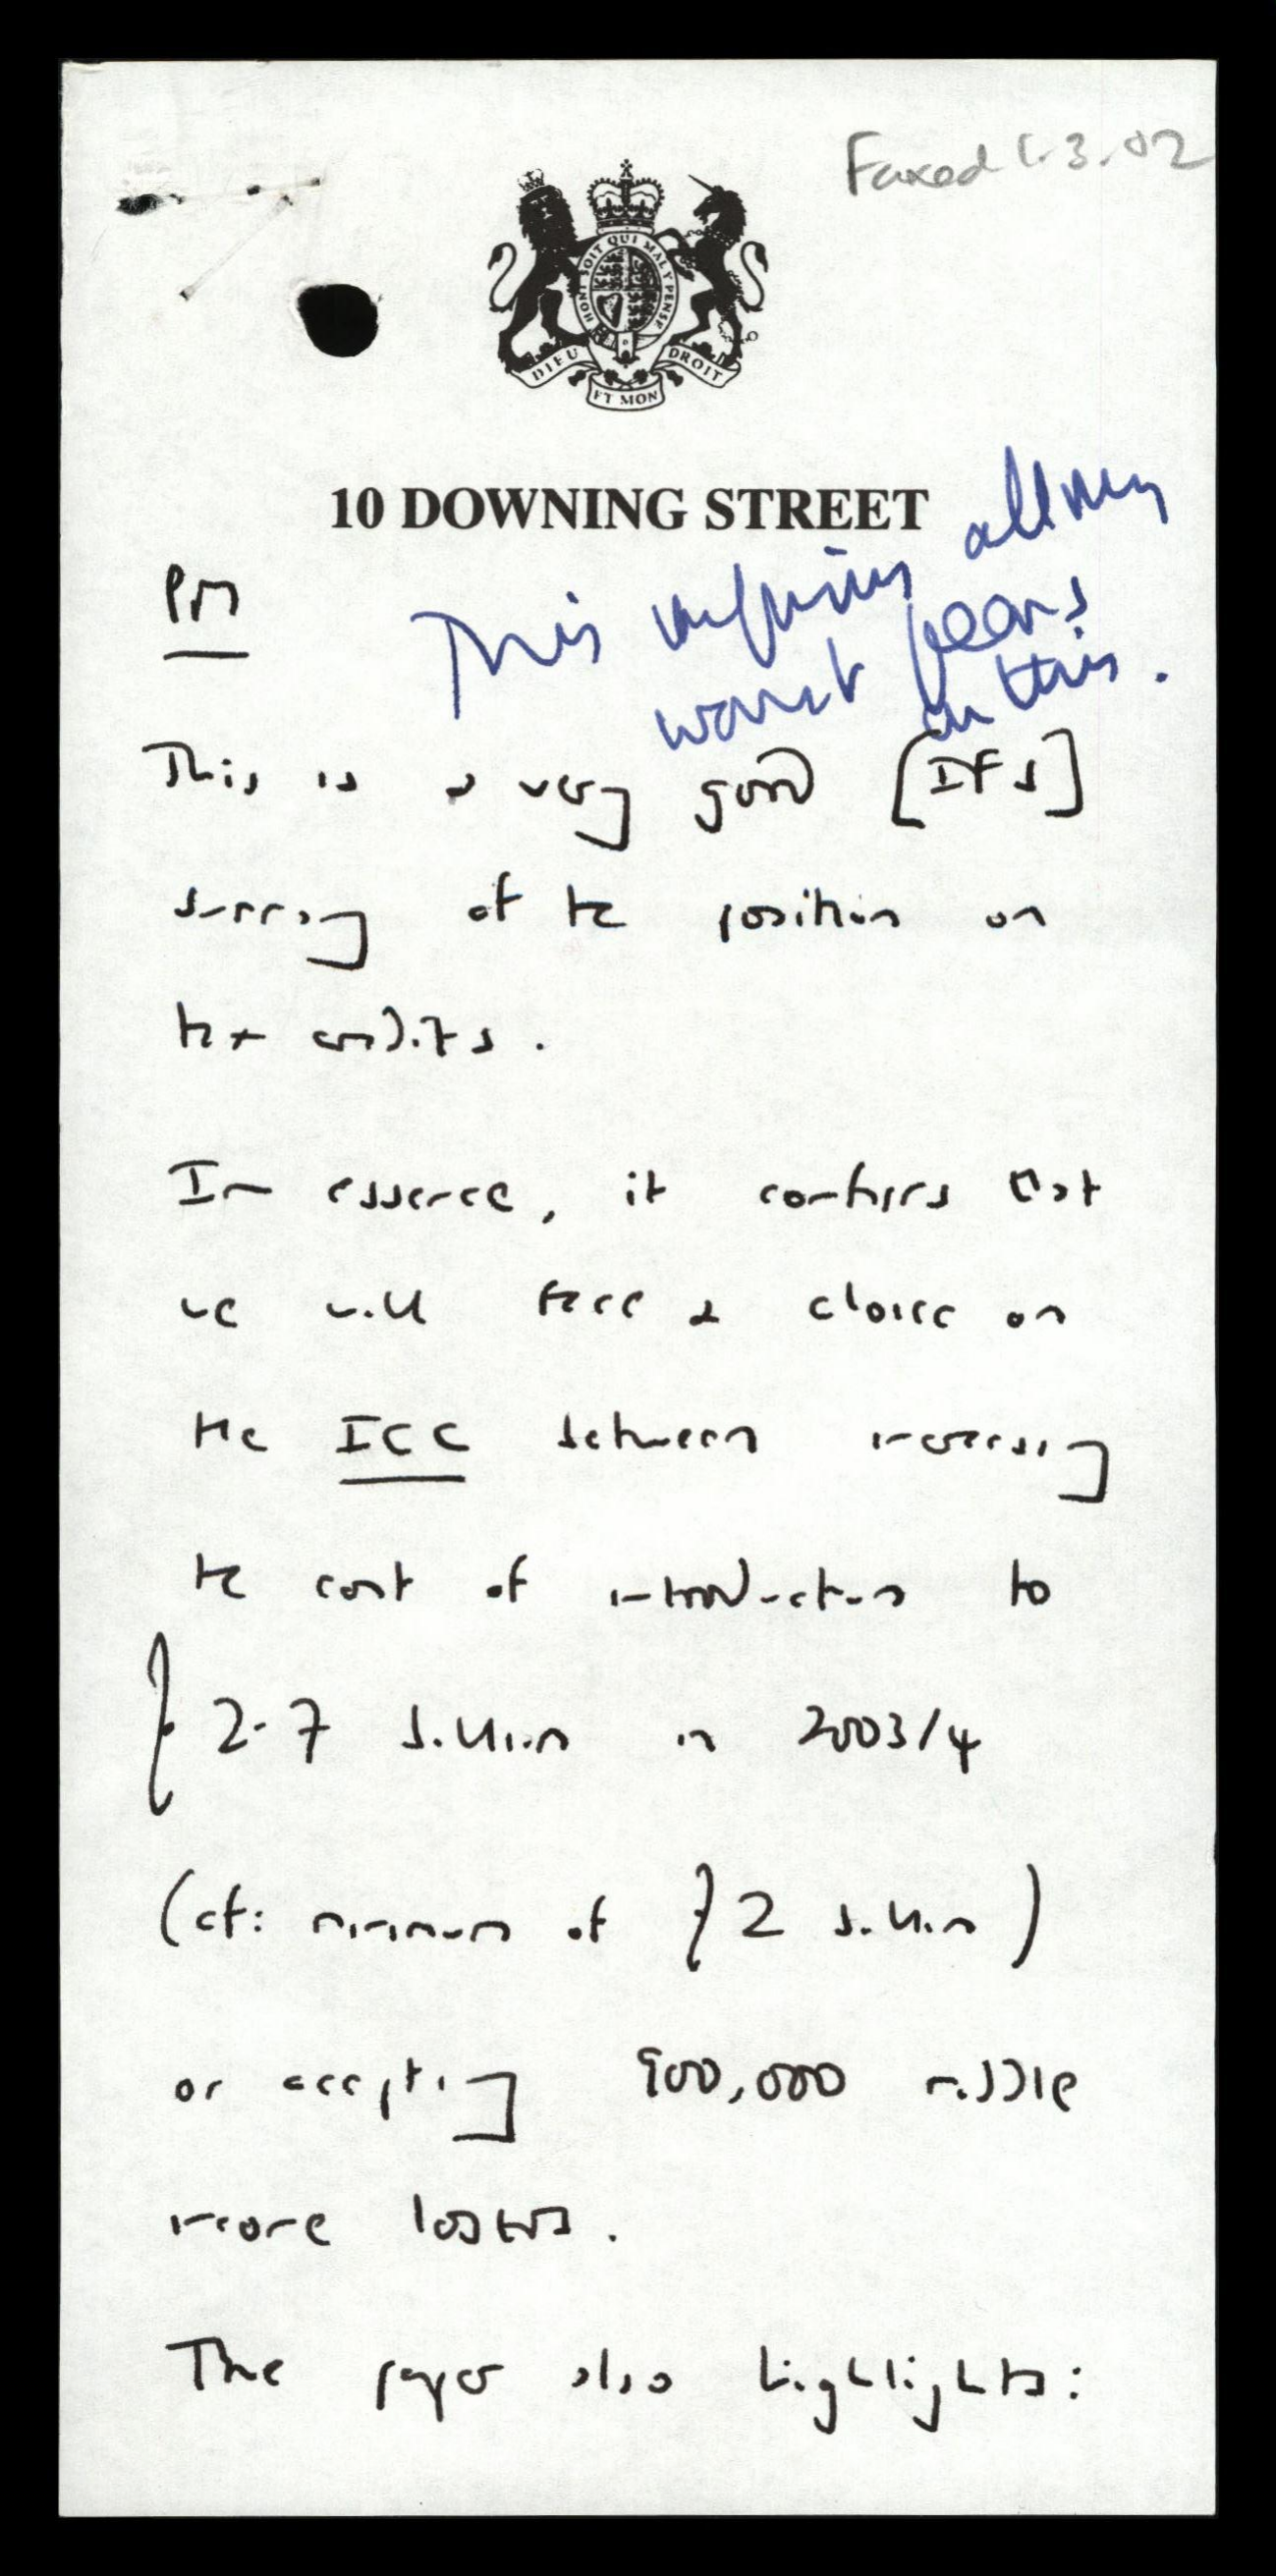 Faxed 1.3.02
HONI SOIT QUI MAL Y PENSE
DIEU ET MON DROIT
10 DOWNING STREET
PM
This confirms all my
worst fears
on this.
This is a very good [IFS]
summary of the position on
tax credits.
In essence, it confirms that
we will face a choice on
the ICC between increasing
the cost of introduction to
£2.7 billion in 2003/4
(cf: minimum of £2 billion)
or accepting 900,000 middle
income losers.
The paper also highlights: